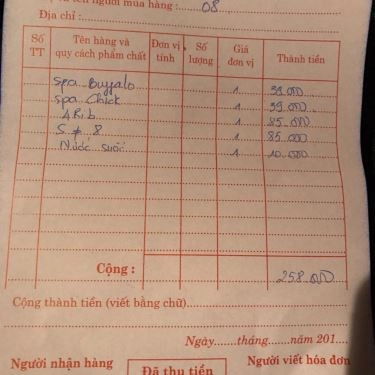 tên người mua hàng : 08
Địa chỉ :
Số TT Tên hàng và quy cách phẩm chất Đơn vị tính Số lượng Giá đơn vị Thành tiền
Spa Buffalo 1 39.000
Spa Chick 1 39.000
4 Rib 1 85.000
S.p. 8 1 85.000
Nước suối 1 10.000
Cộng : 258.000
Cộng thành tiền (viết bằng chữ)
Ngày.......tháng.......năm 201....
Người nhận hàng Đã thu tiền Người viết hóa đơn